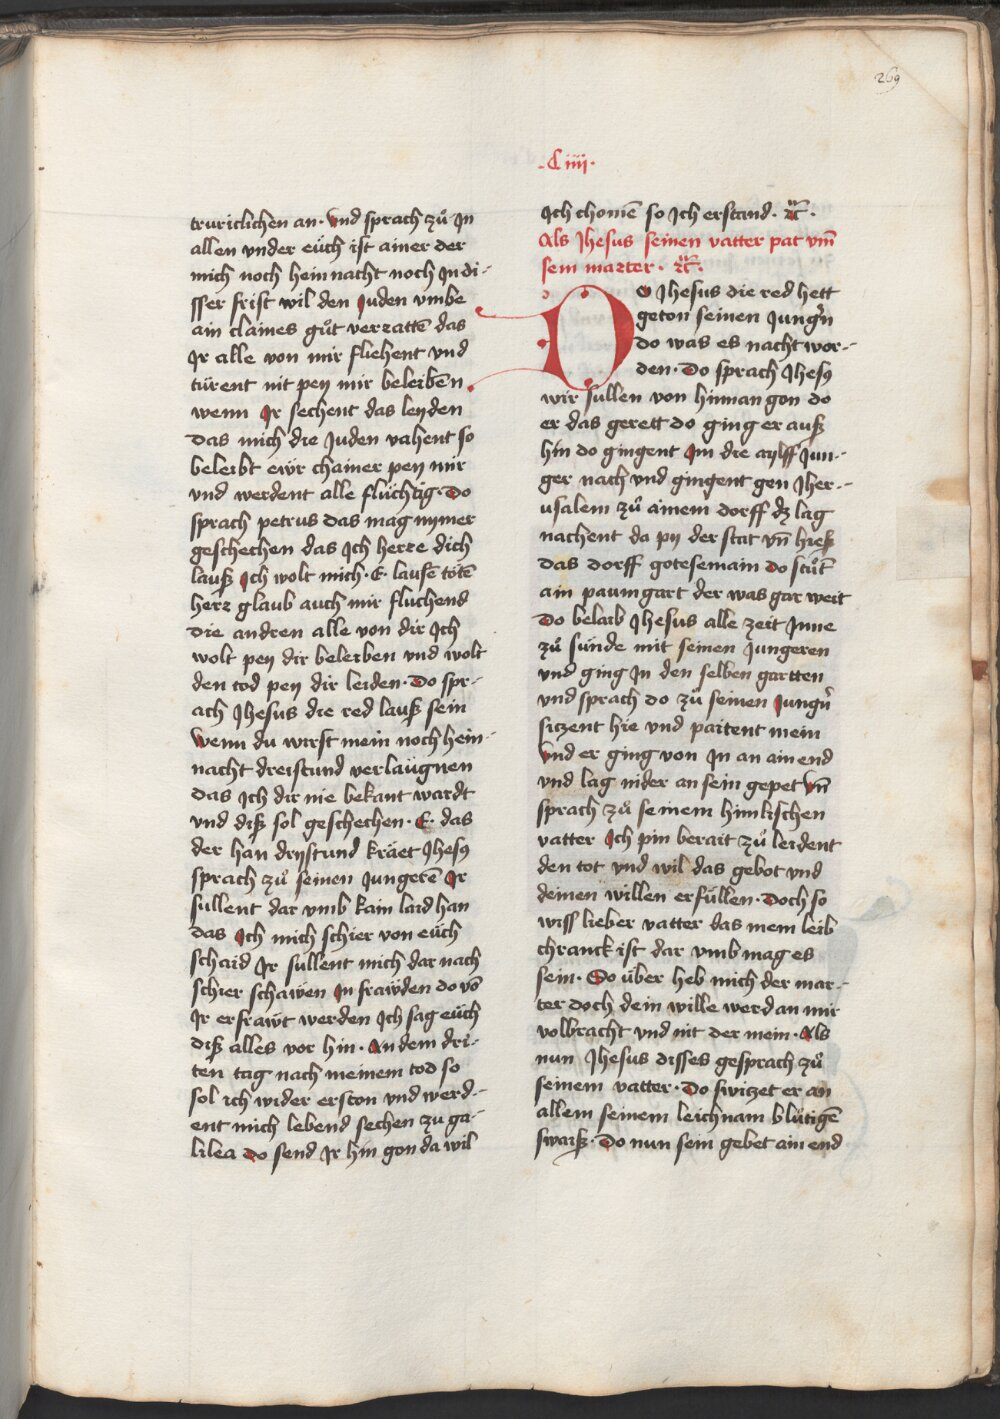 269
.C iiij.
truriclichen an. Vnd sprach zuͦ Jn
allen vnder eüch ist ainer der
mich noch hein nacht noch Jn di-
sser frist wil den Juden vmbe
ain claines guͦt verratten̄ das
Jr alle von mir fliehent vnd
türent nit pey mir beleiben
wenn Jr sechent das leyden
das mich die Juden vahent so
beleibt ewr chainer pey mir
vnd werdent alle flüchtig. Do
sprach petrus das mag nymer
geschechen das Jch herre dich
lauß Jch wolt mich. E. laussē tötē
herr glaub auch mir fluchend
die andren alle von dir Jch
wolt pey dir beleiben vnd wolt
den tod pey dir leiden. Do spr-
ach Jhesus die red lauß sein
Wenn du wirst mein noch hein-
nacht dreistund verlaügnen
das Jch dir nie bekant wardt
vnd diß sol geschechen. E. das
der han drystund kräet Jhesꝯ
sprach zuͦ seinen Jungerē Jr
sullent dar vmb kain laid han
das Jch mich schier von eüch
schaid Jr sullent mich dar nach
schier schawen Jn frawden do vō
Jr erfrawt werden Jch sag eüch
diß alles vor hin. An dem dri-
ten tag nach meinem tod so
sol ich wider erston vnd werd-
ent mich lebend sechen zu ga-
lilea do send Jr hin gon da wil
Jch chomē so Jch erstand. ⁊c̄.
Als Jhesus seinen vatter pat vm̄
sein marter. ⁊c̄.
DO Jhesus die red hett
geton seinen Jungern
do was es nacht wor-
den. Do sprach Jhesꝯ
wir sullen von hinnan gon do
er das gerett do ging er auß
hin do gingent Jm die aylff Jun-
ger nach vnd gingent gen Jher-
usalem zuͦ ainem dorff dz lag
nachent da py der stat vn̄ hieß
das dorff gotesemain do stuͦt
ain paumgart der was gar weit
Do belaib Jhesus alle zeit Jnne
zuͦ sünde mit seinen Jungeren
vnd ging Jn den selben gartten
vnd sprach do zuͦ seinen Jungern
siczent hie vnd paitent mein
Vnd er ging von Jn an ain end
vnd lag nider an sein gepet vn̄
sprach zuͦ seinem himlischen
vatter Jch pin berait zuͦ leident
den tot vnd wil das gebot vnd
deinen willen erfüllen. Doch so
wiss lieber vatter das mein leib
chranck ist dar vmb mag es
sein. So über heb mich der mar-
ter doch dein wille werd an mir
volbracht vnd nit der mein. Als
nun Jhesus disses gesprach zuͦ
seinem vatter. Do swiczet er an
allem seinem leichnam blütigē
swaiß. Do nun sein gebet ain end